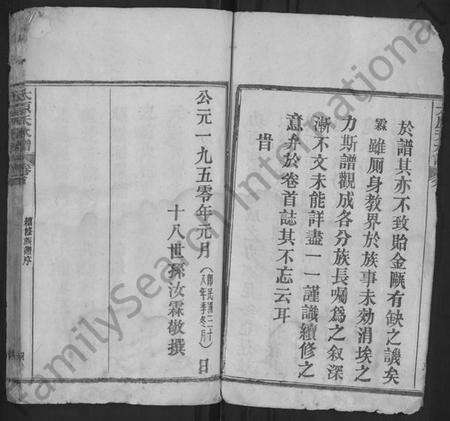 於譜其亦不致貽金甌有缺之譏矣
霖雖厠身敎界於族事未効涓埃之
力斯譜觀成各分族長囑爲之叙深
漸不文未能詳盡一一謹識續修之
意弁於卷首誌其不忘云耳
旹
公元一九五零年元月(即民國三十八年季冬月)日
十八世孫汝霖敬撰
FamilySearch International